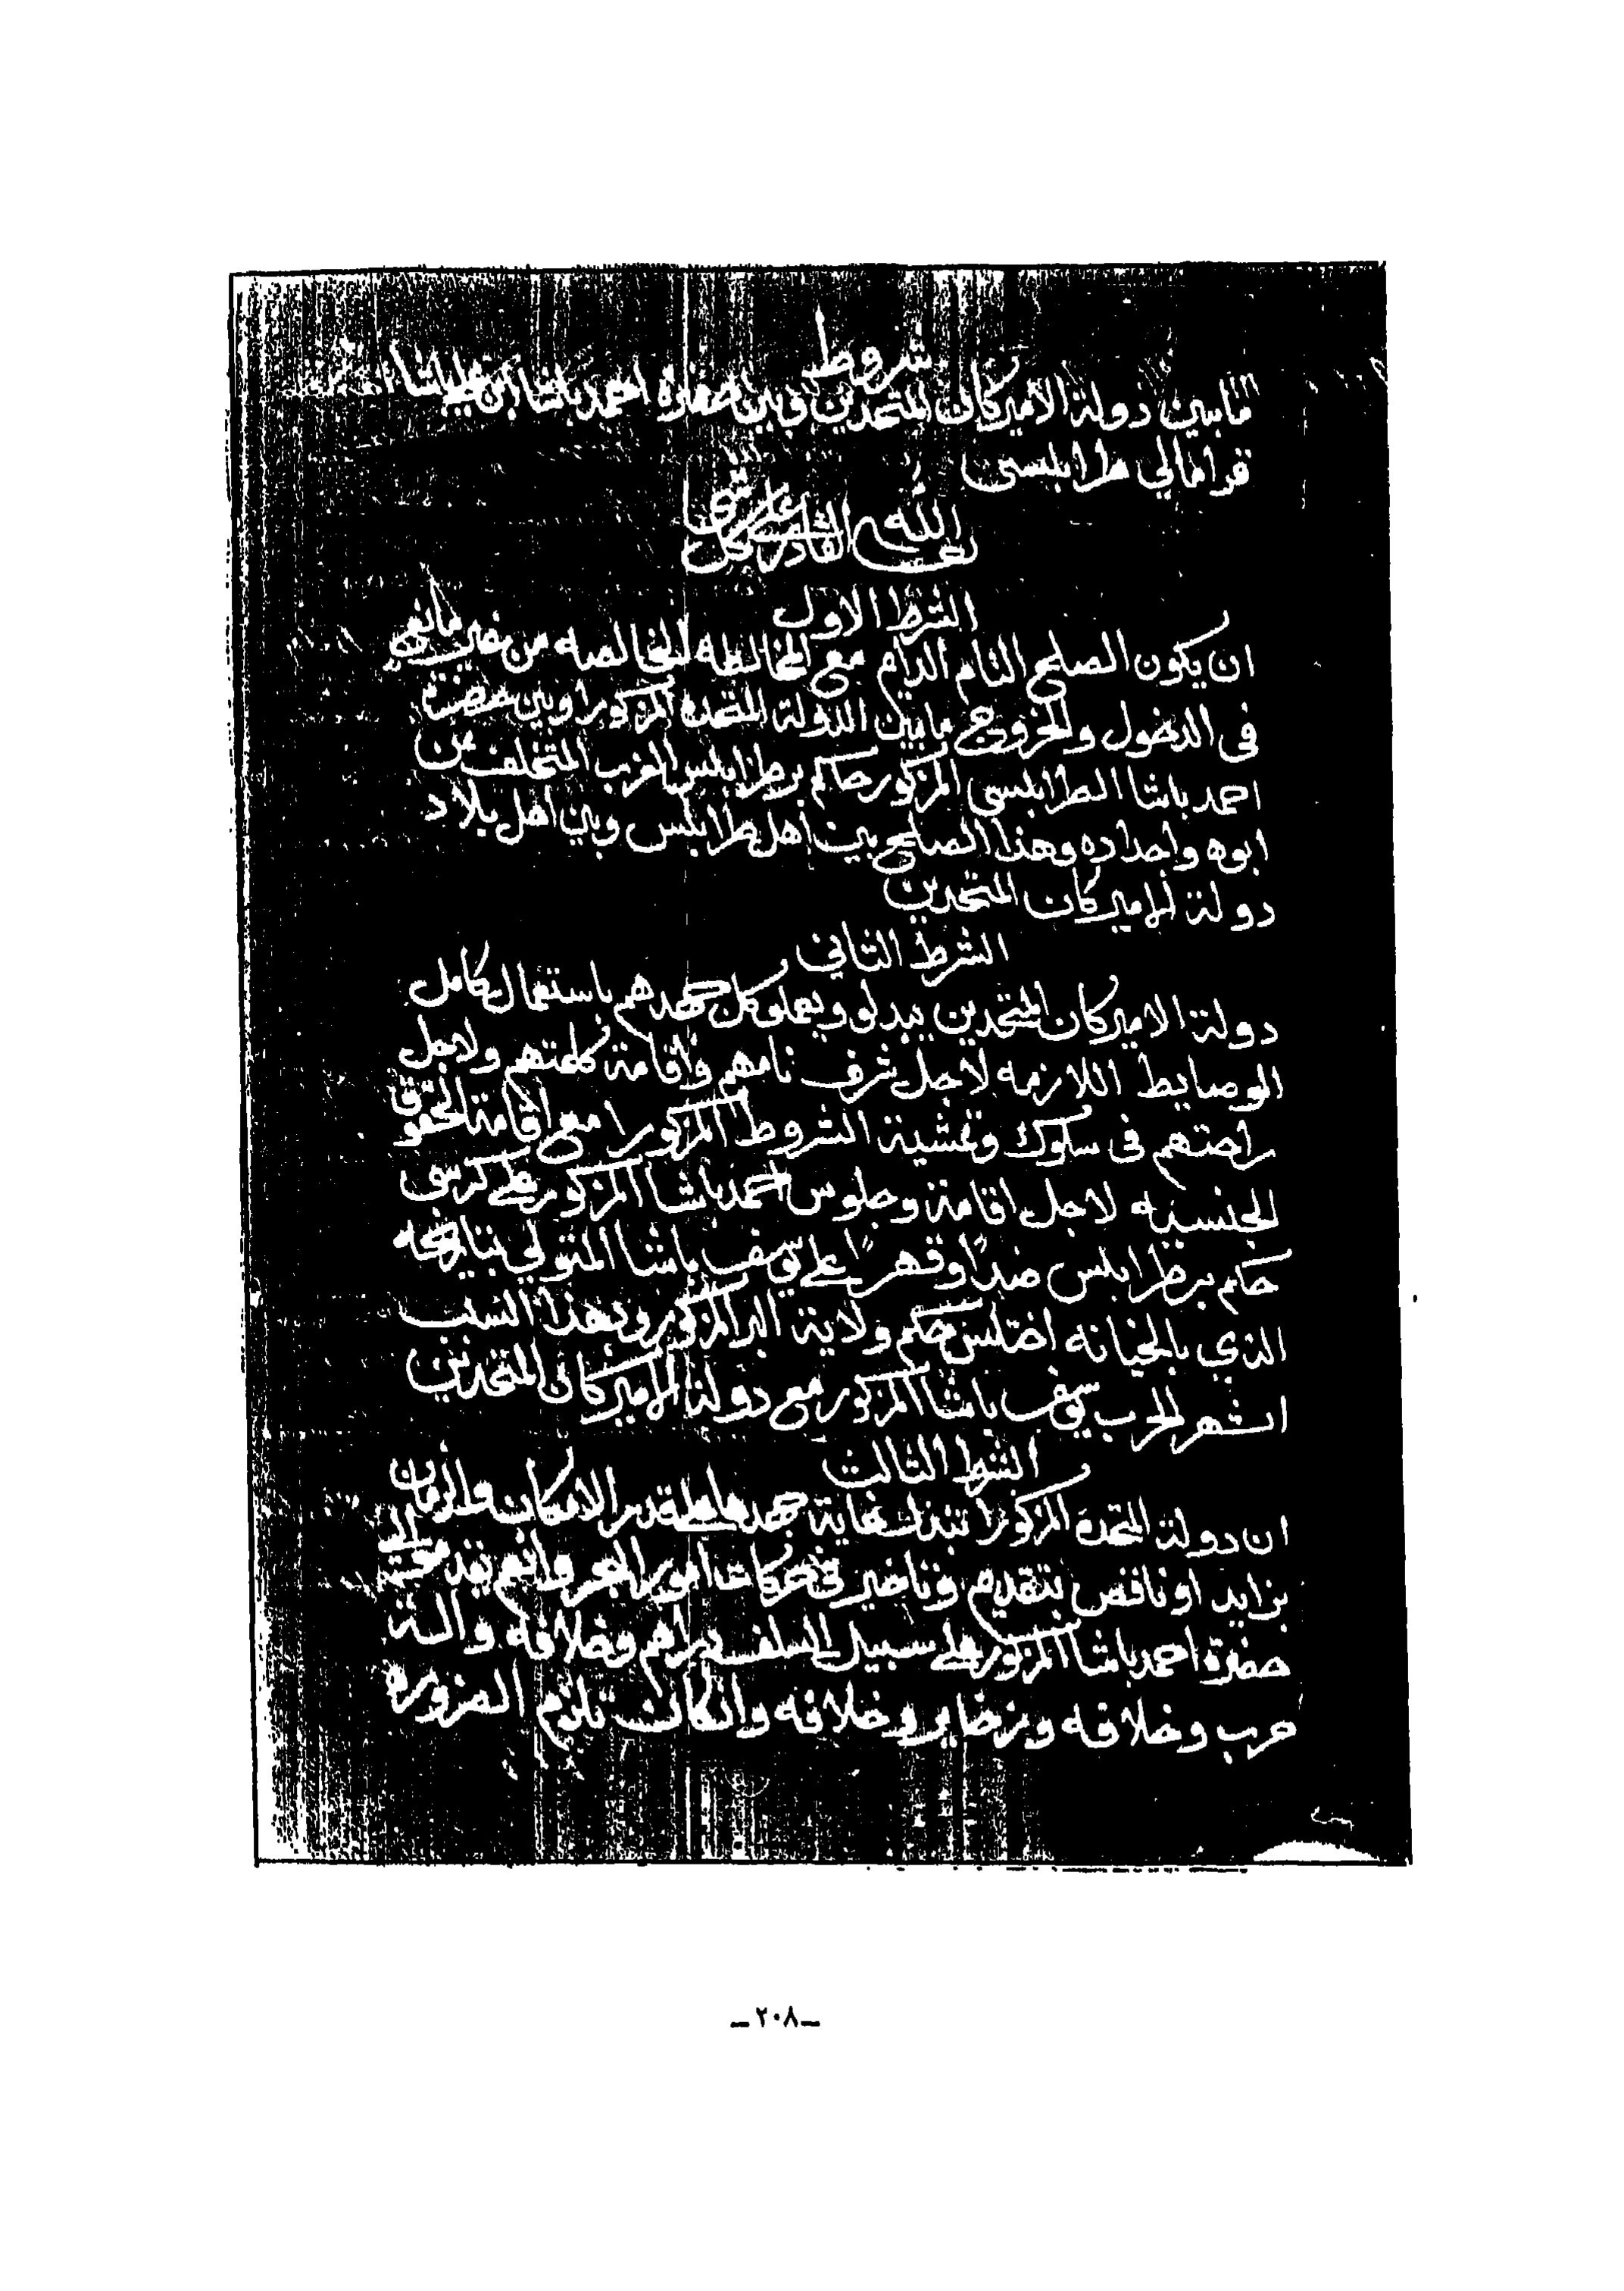 شروط
مابين دولة الاميركان المتحدين وبين حضرة احمد باشا ابن علي باشا
قرامالي طرابلسي
الله القادر على كل شي
الشرط الاول
ان يكون الصلح التام الدايم مع المخالطه المخالصه من غير مانع
في الدخول والخروج مابين الدولة المتحده المزكورا وبين حضرة
احمد باشا الطرابلسي المزكور حاكم بر طرابلس الغرب المتخلف من
ابوه واجداده وهذا الصلح بين اهل طرابلس وبين اهل بلاد
دولة الاميركان المتحدين
الشرط الثاني
دولة الاميركان المتحدين يبدلو ويعملو كل جهدهم باستعمال كامل
الوصايط اللازمه لاجل شرف نامهم واقامة كلمتهم ولاجل
راحتهم في سكوك وتمشية الشروط المزكورا مع اقامة الحقوق
الجنسيه لاجل اقامة وجلوس احمد باشا المزكور على كرسي
حكم بر طرابلس ضدًا وقهرًا على يوسف باشا المتولي
الذي بالخيانه اختلس حكم ولاية البر المزكور وبهذا السبب
اشهر الحرب يوسف باشا المزكور مع دولة الاميركان المتحدين
الشرط الثالث
ان دولة المتحدة المزكورا تبذل غاية جهدها على قدر الامكان والزمان
بزايد او ناقص بتقديم وتاخير في حركات امور البحر وانهم يقدمو الى
حضرة احمد باشا المزكور على سبيل السلف دراهم وخلافه والة
حرب وخلافه وزخاير وخلافه وانكان تلزم الضروره
ـ٢٠٨ـ